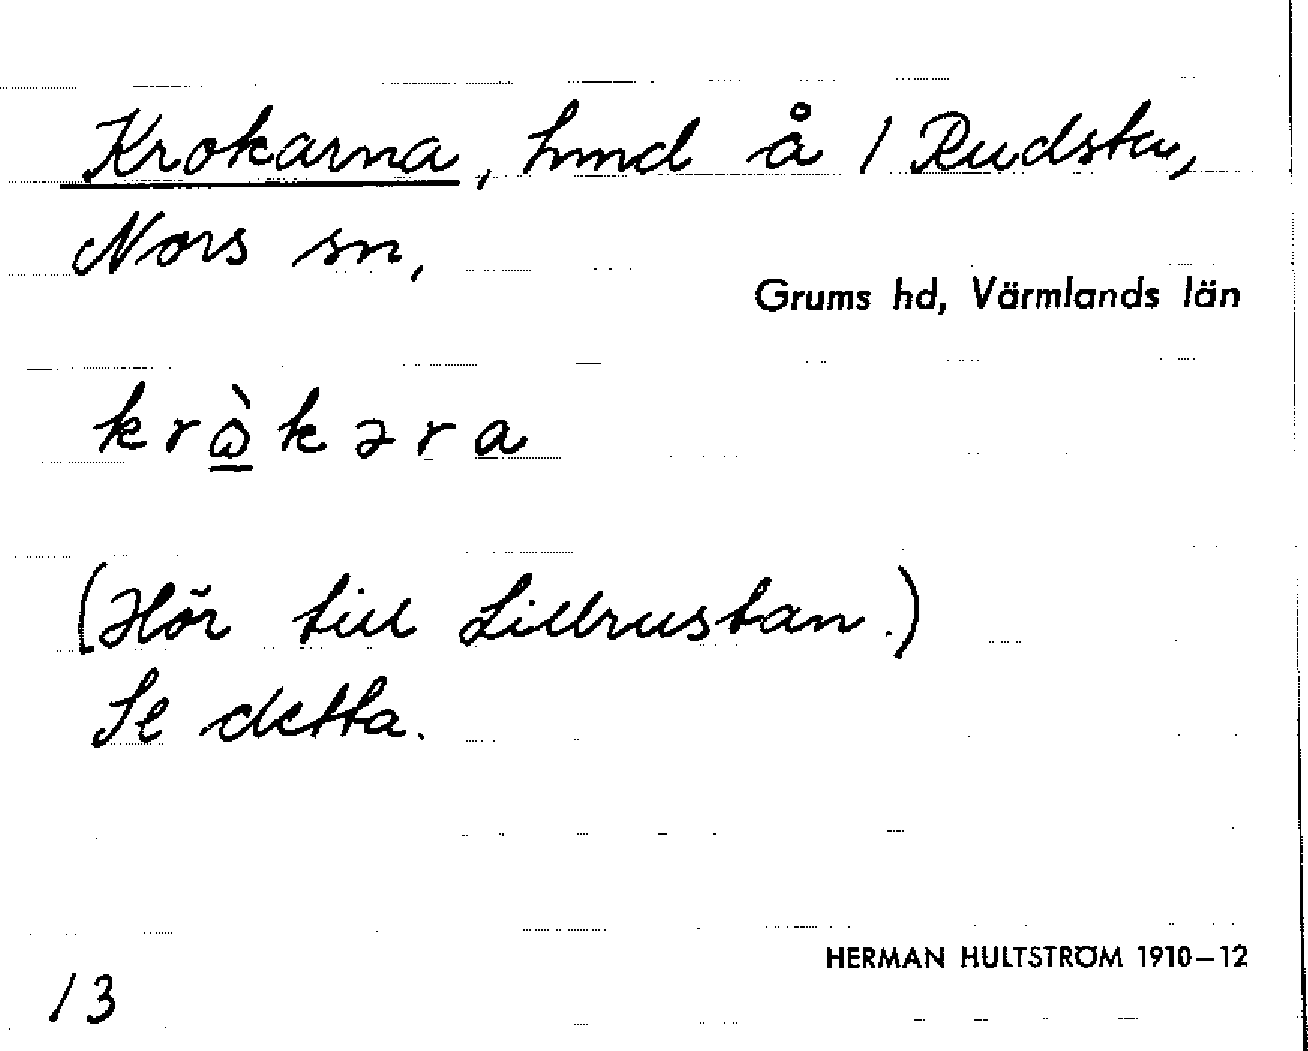 Krokarna, hmd å 1 Rudsta,
Nors sn,
Grums hd, Värmlands län
kròkəra
(Hör till Lillrustan.)
Se detta.
HERMAN HULTSTRÖM 1910–12
13